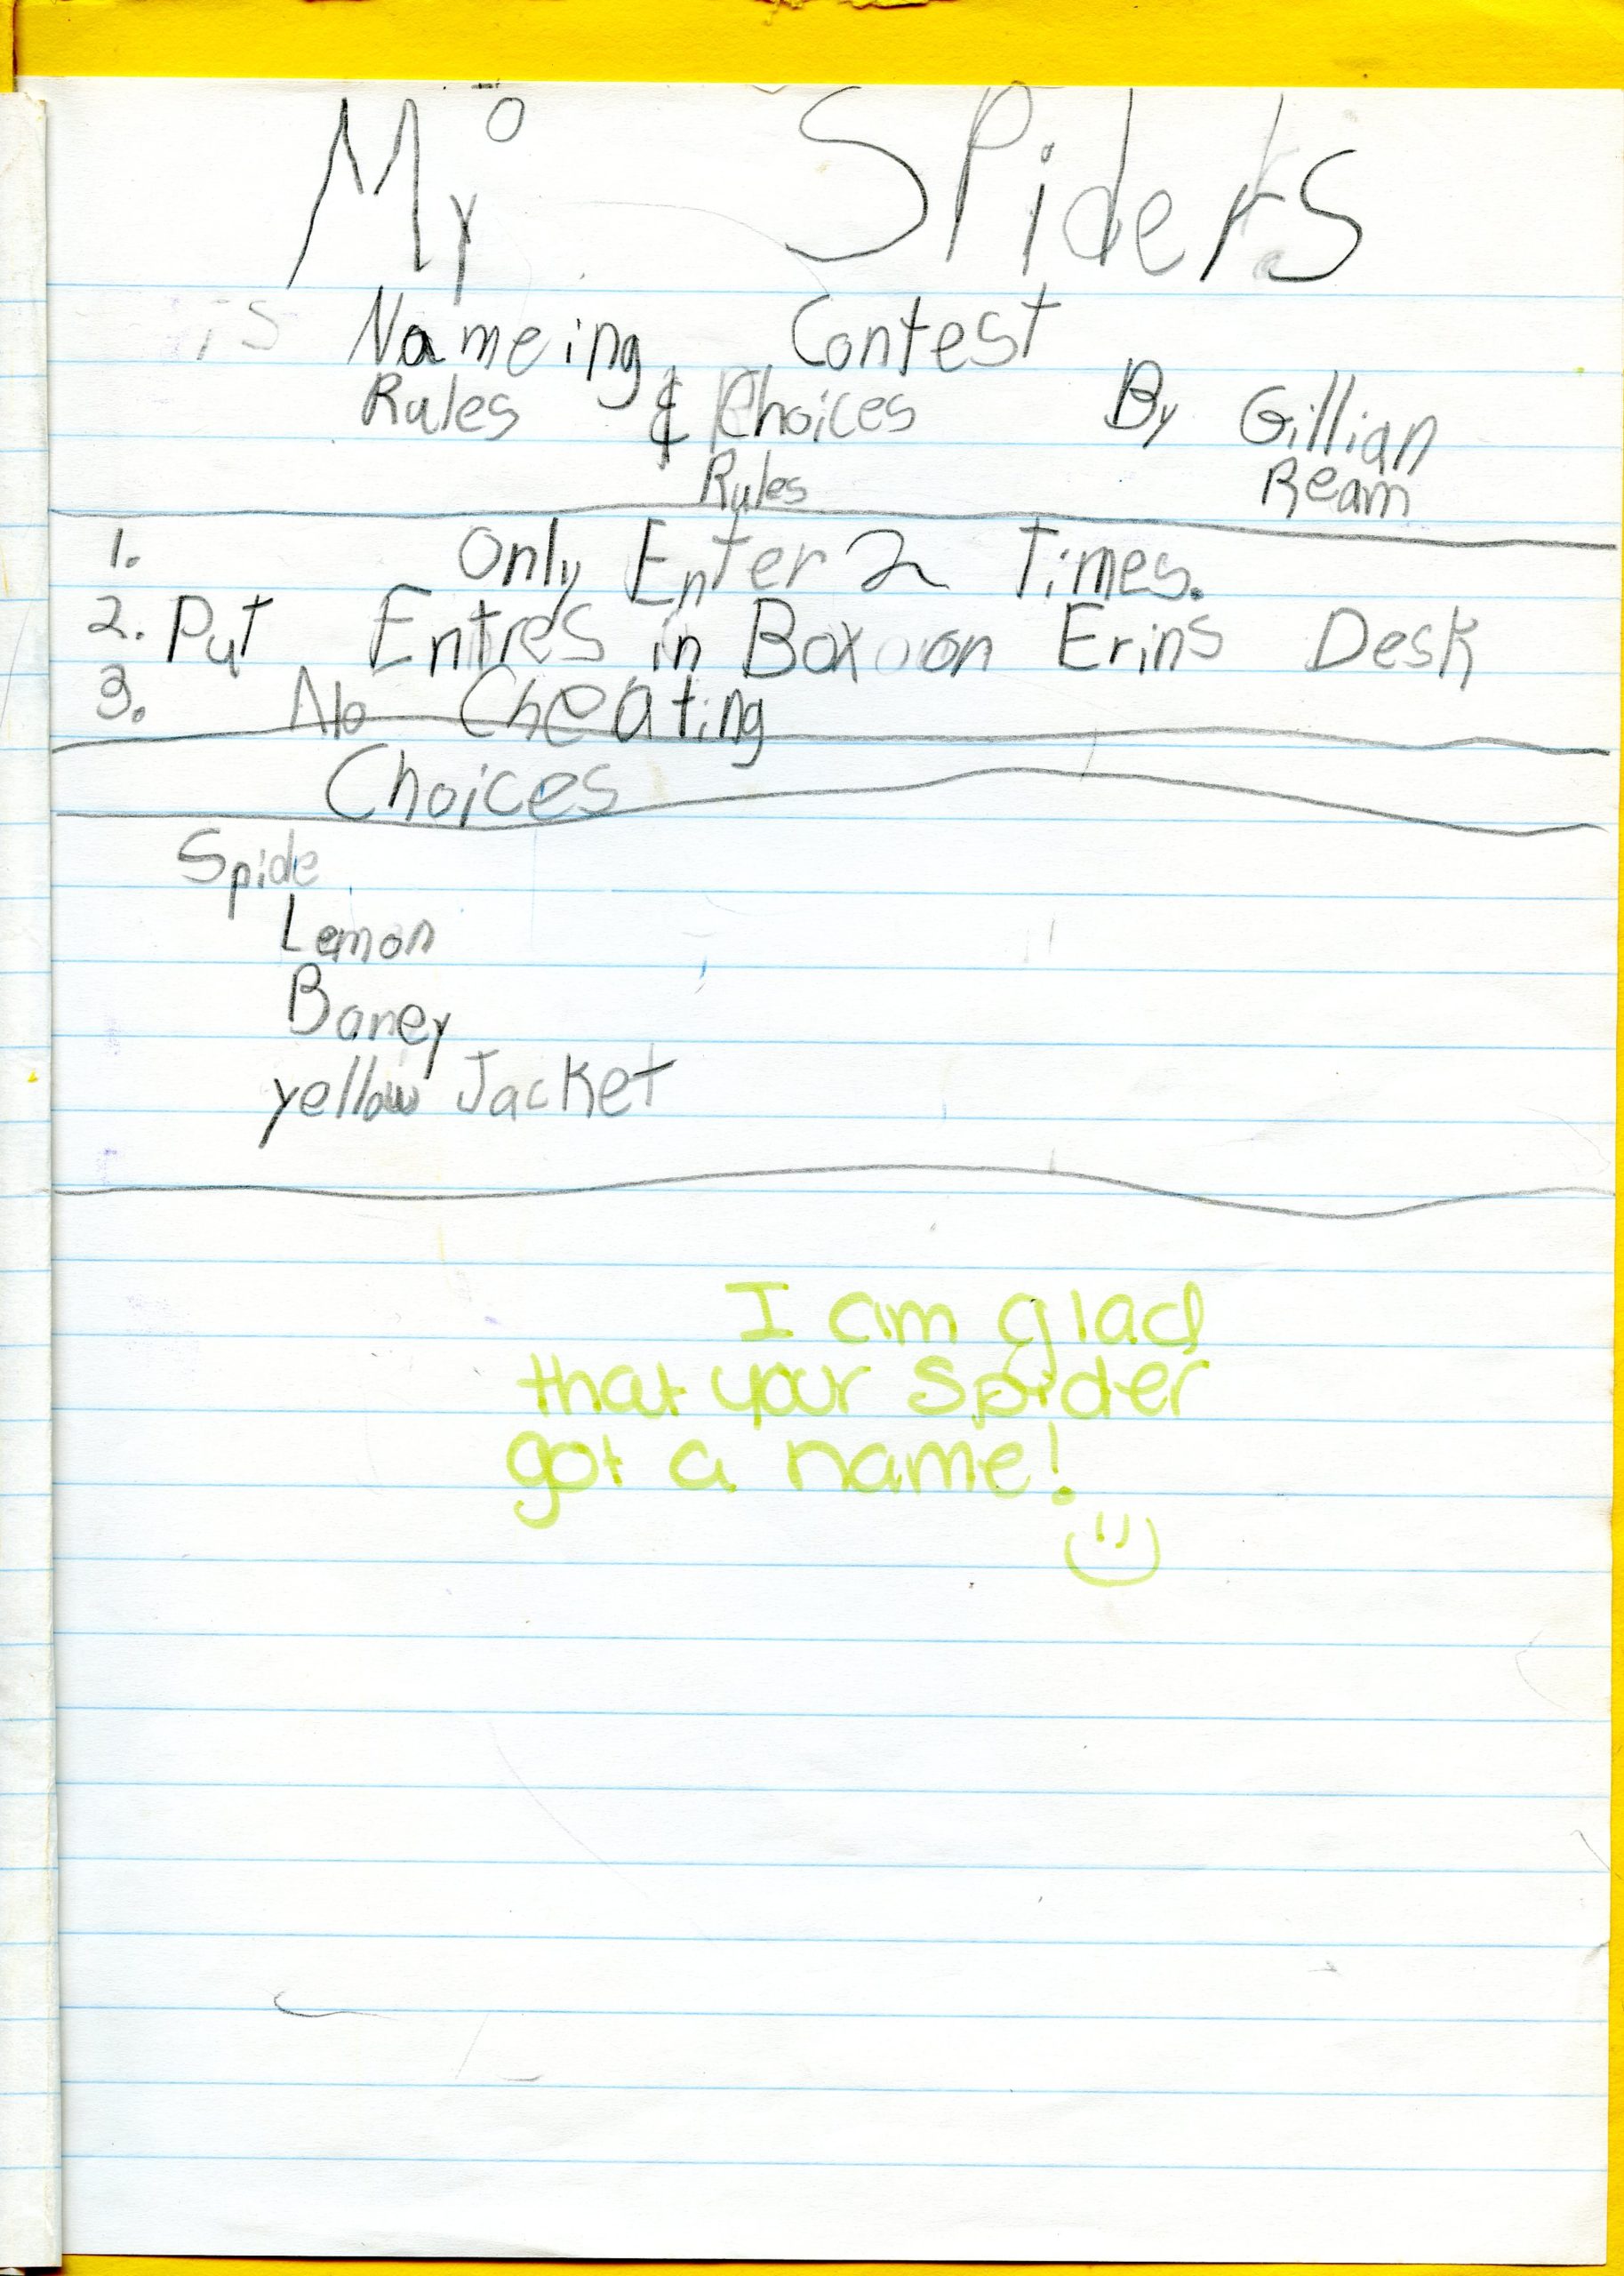 My Spiders
Nameing Contest
Rules & Choices By Gillian
Ream
Rules
1. Only Enter 2 Times.
2. Put Entres in Box on Erins Desk
3. No Cheating
Choices
Spide
Lemon
Boney
yellow Jacket
I am glad
that your spider
got a name!